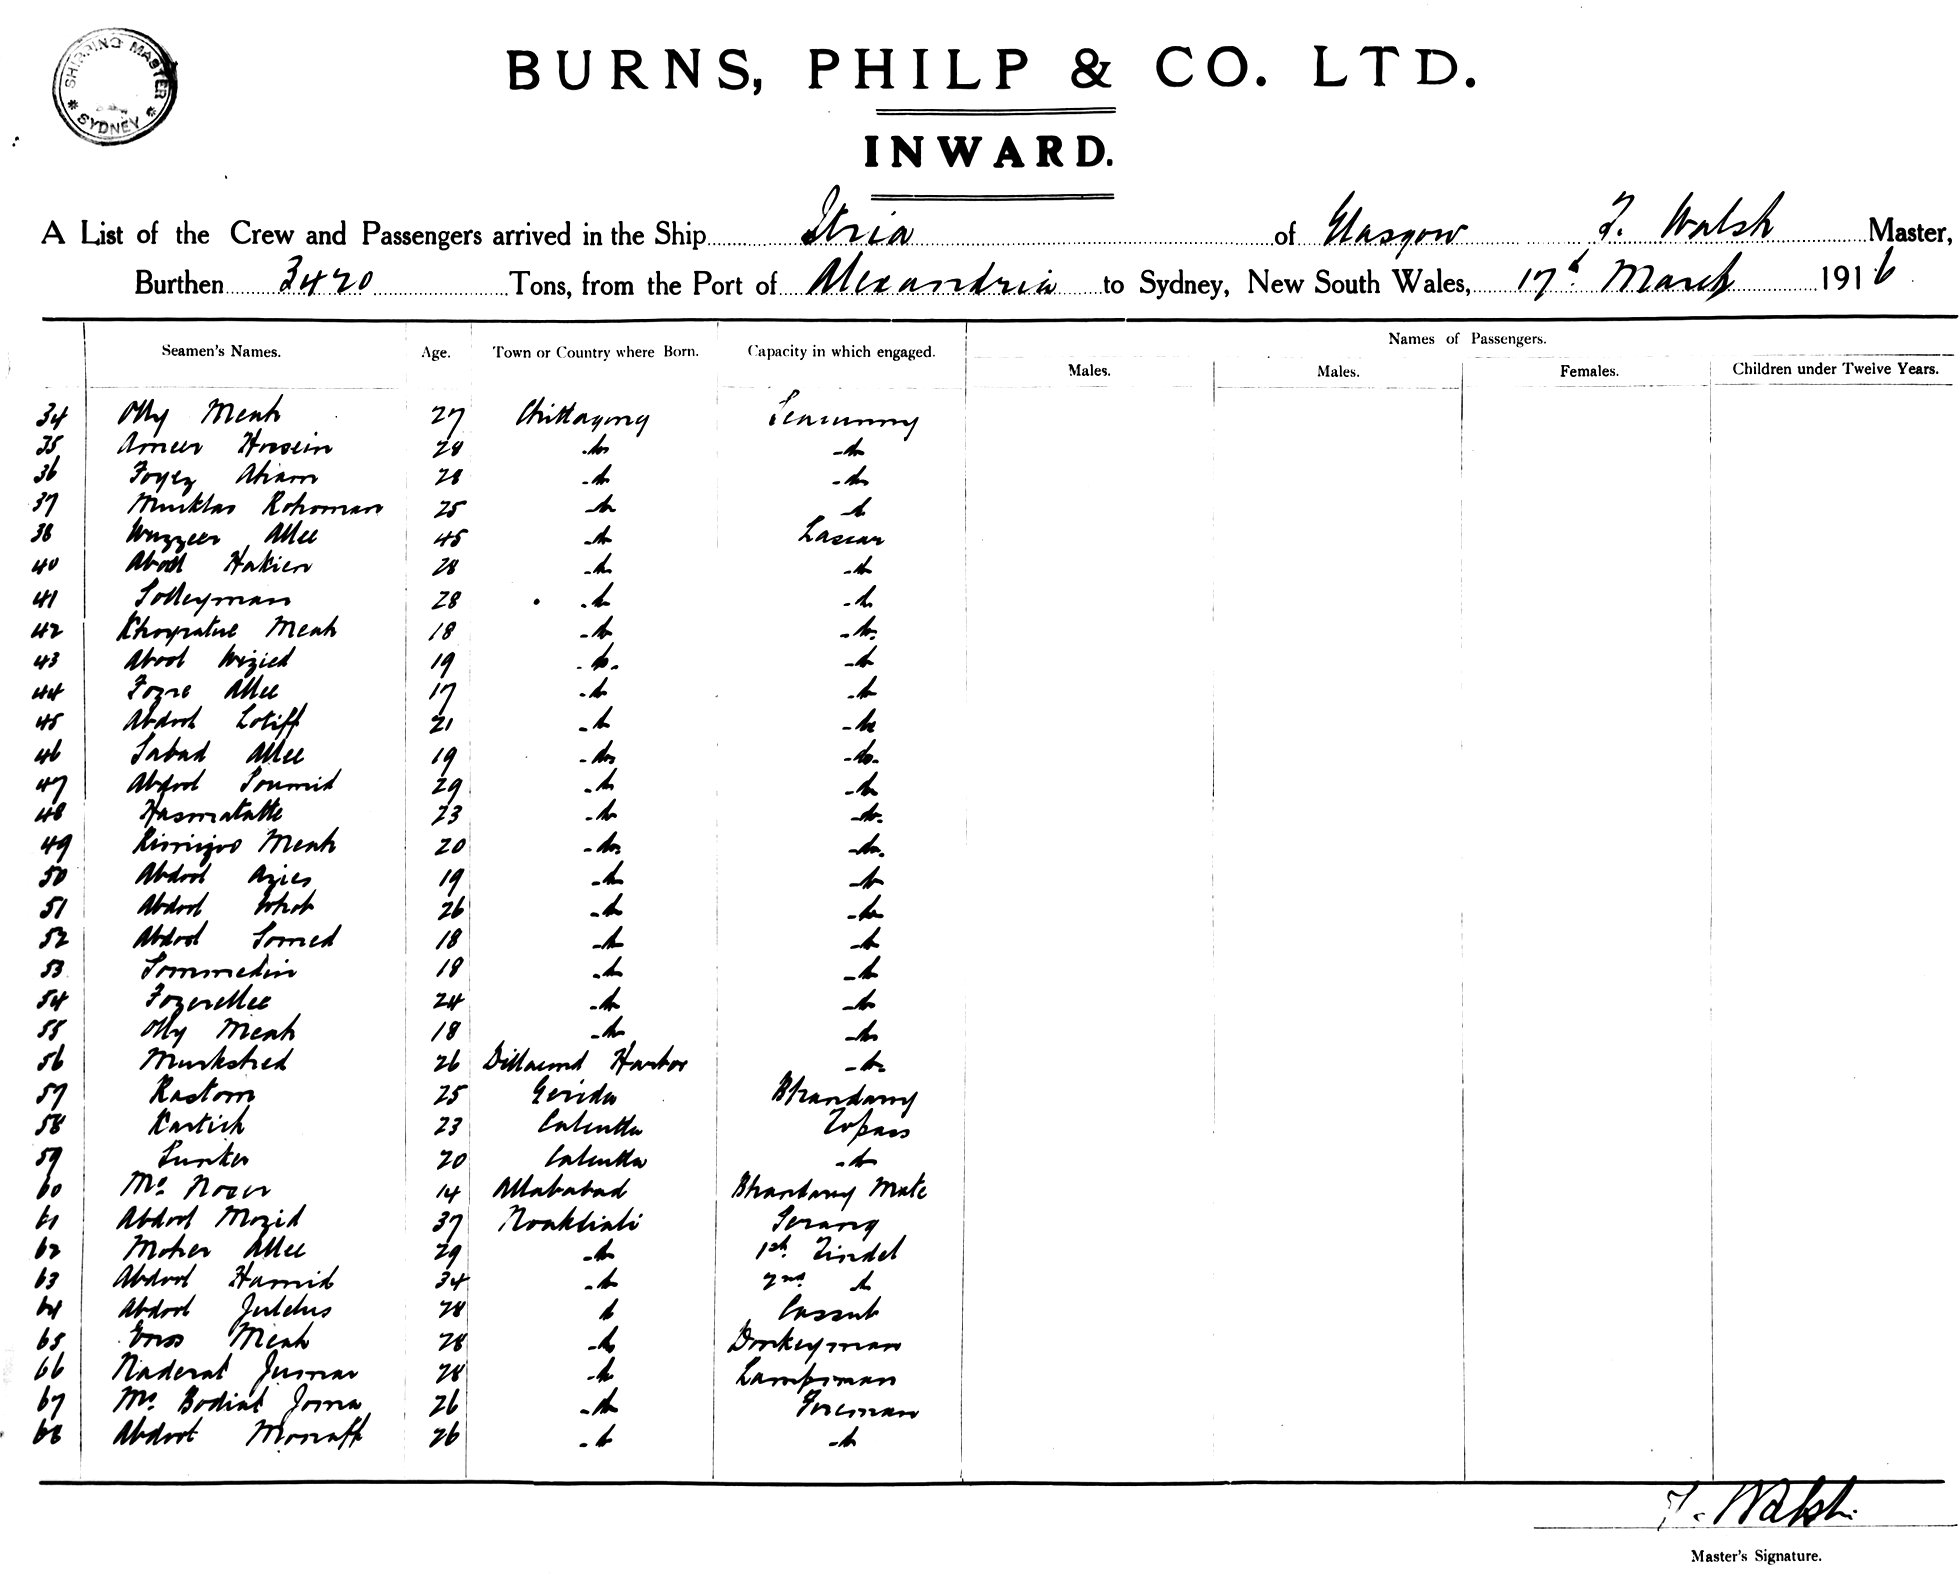 SHIPPING MASTER
SYDNEY
BURNS, PHILP & CO. LTD.
INWARD.
A List of the Crew and Passengers arrived in the Ship Itria of Glasgow F. Walsh Master,
Burthen 3420 Tons, from the Port of Alexandria to Sydney, New South Wales, 17th March 1916
Names of Passengers.
Seamen's Names. Age. Town or Country where Born. Capacity in which engaged. Males. Males. Females. Children under Twelve Years.
34 Olly Meah 27 Chittagong Seacunny
35 Ameer Hossein 28 -do- -do-
36 Foyez 28 -do- -do-
37 Rohoman 25 -do- -do-
38 Wuzzeer Allee 45 -do- Lascar
40 Abool Hakien 28 -do- -do-
41 Solleyman 28 -do- -do-
42 Meah 18 -do- -do-
43 Abool Wizied 19 -do- -do-
44 Fozre Allee 17 -do- -do-
45 Abdool Lotiff 21 -do- -do-
46 Sabad Allee 19 -do- -do-
47 Abdool Soumid 29 -do- -do-
48 23 -do- -do-
49 Meah 20 -do- -do-
50 Abdool Azies 19 -do- -do-
51 Abdool Whob 26 -do- -do-
52 Abdool Somed 18 -do- -do-
53 Sommedin 18 -do- -do-
54 Fozerellee 24 -do- -do-
55 Olly Meah 18 -do- -do-
56 26 Harbor -do-
57 Rastom 25 Bhandary
58 Kartick 23 Calcutta Topass
59 Sunker 20 Calcutta -do-
60 Mo. 14 Allahabad Bhandary Mate
61 Abdool Mozid 37 Noakhali Serang
62 Moher Allee 29 -do- 1st Tindel
63 Abdool Hamid 34 -do- 2nd do
64 Abdool 28 do Cassab
65 Meah 28 -do- Donkeyman
66 28 -do- Lampsman
67 Mo. Joma 26 -do- Fireman
68 Abdool 26 -do- -do-
F. Walsh
Master's Signature.